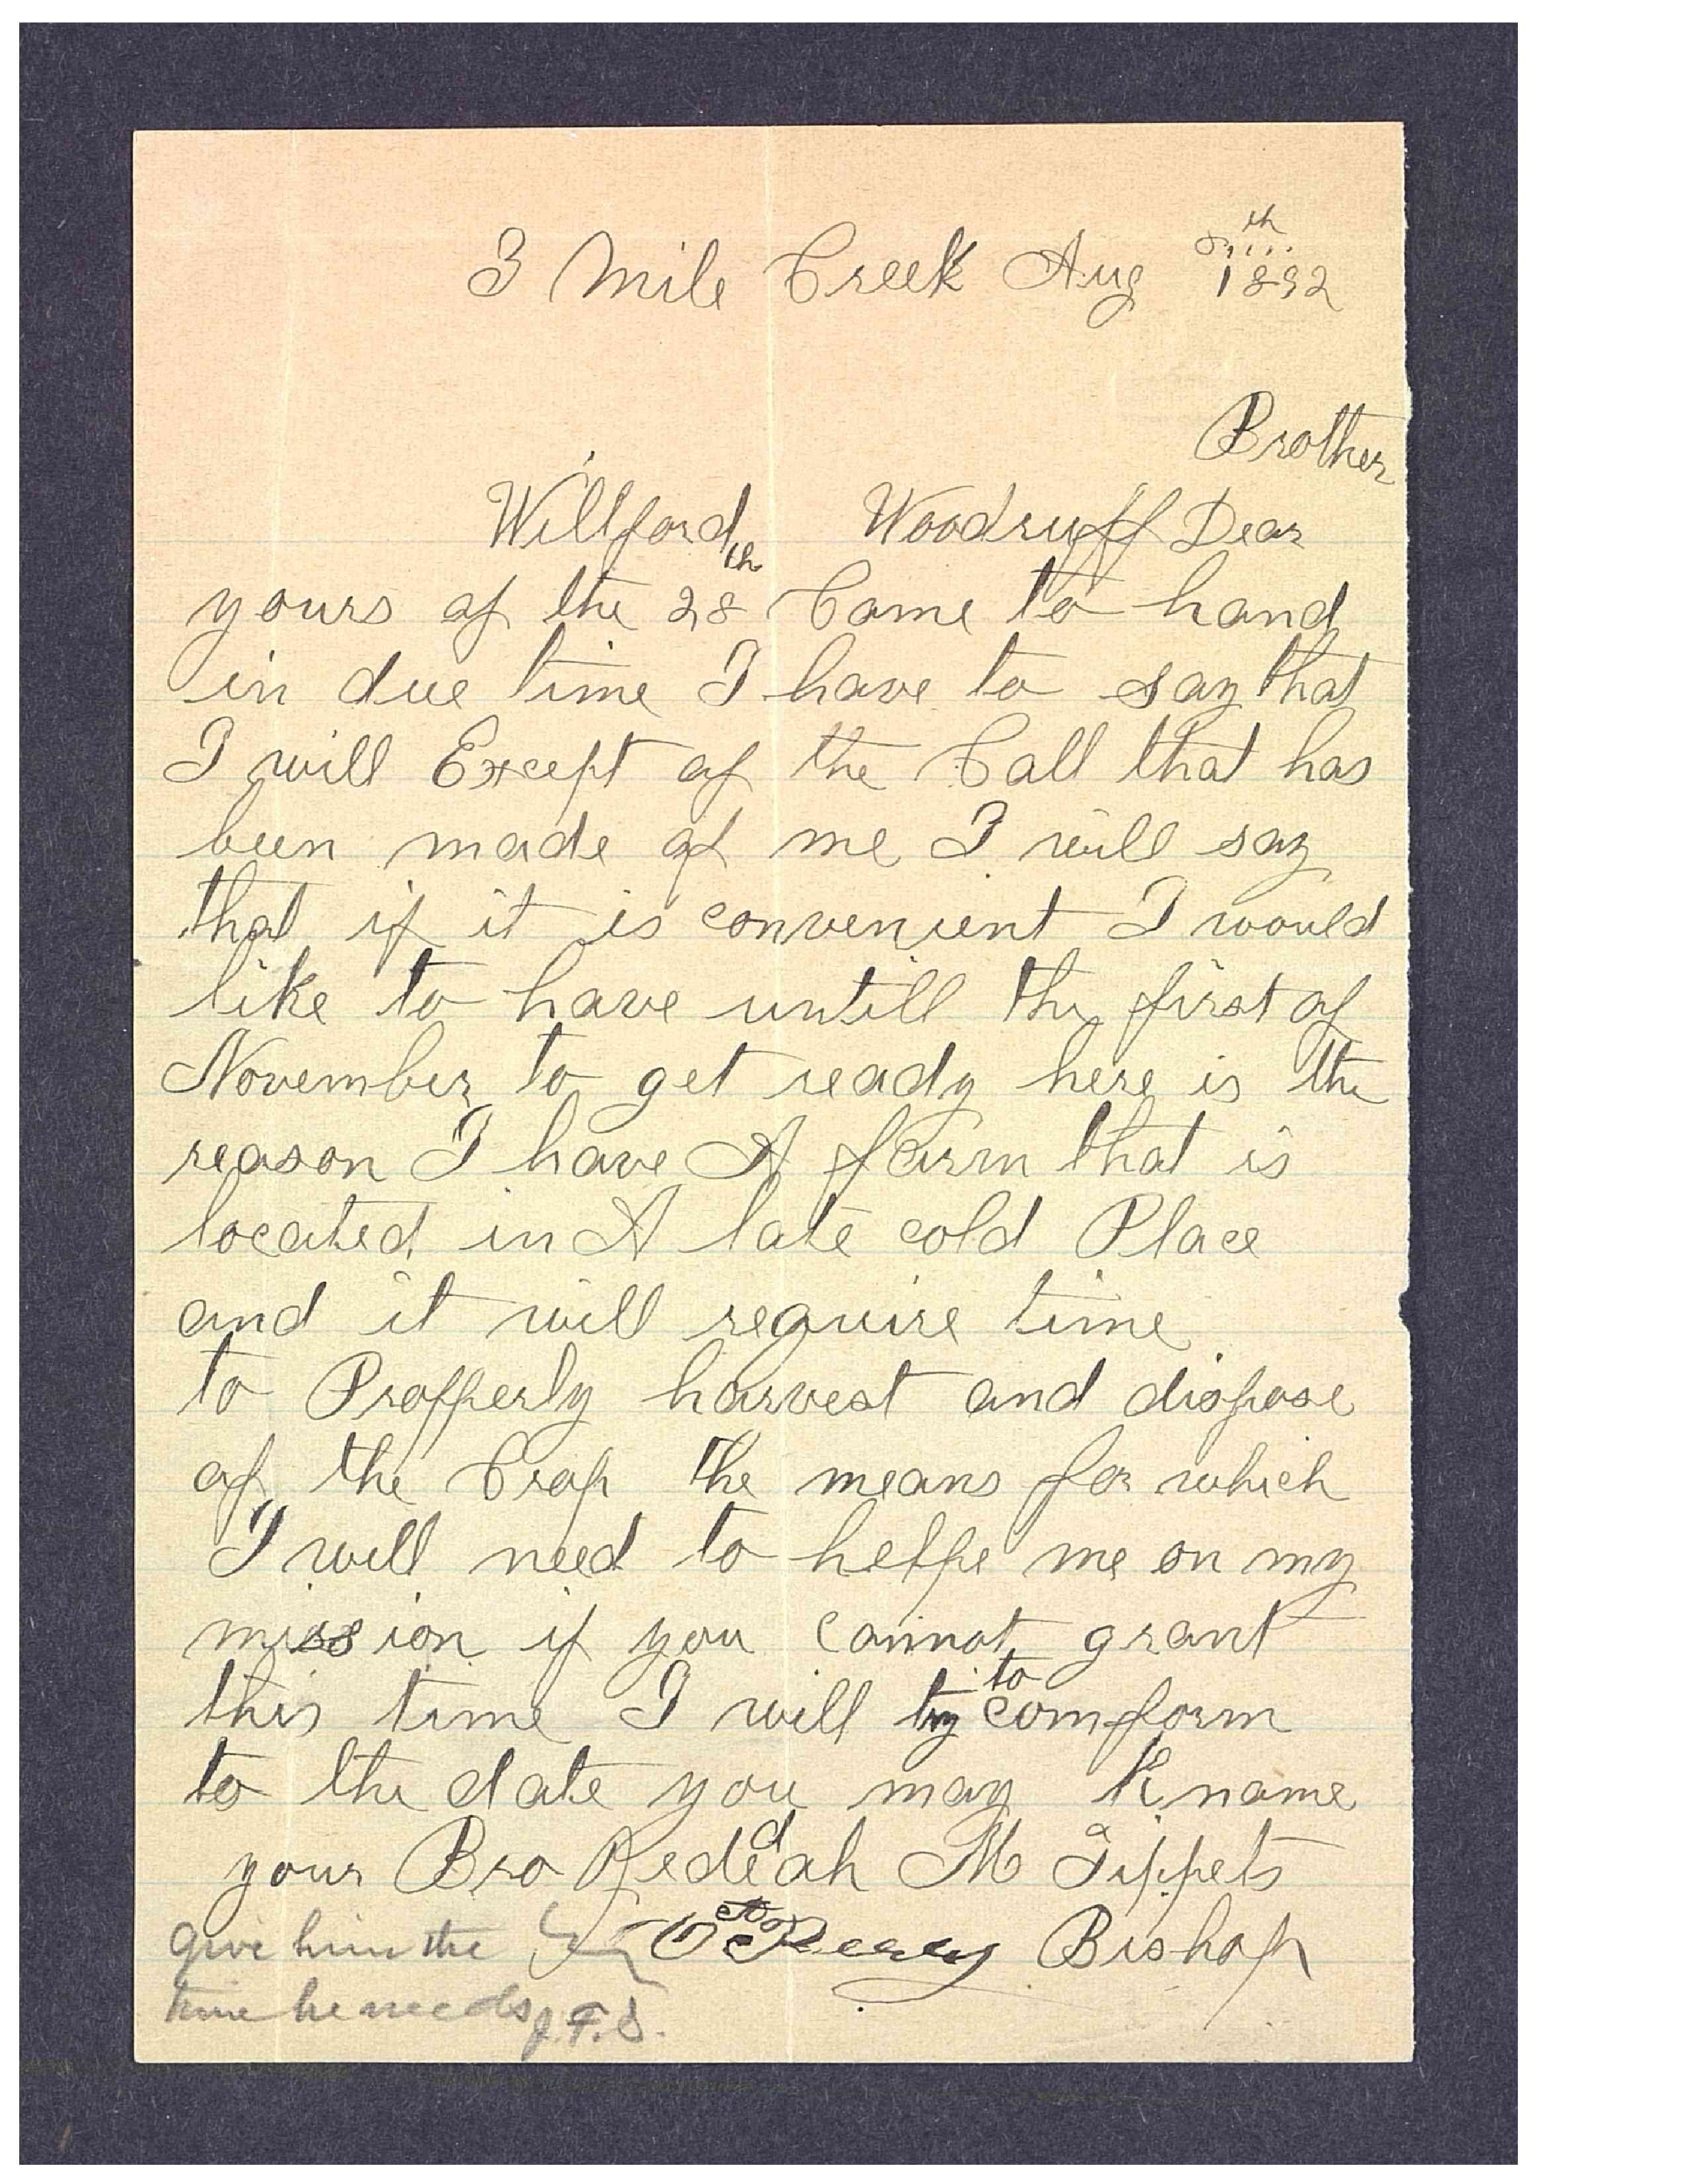 8th
3 Mile Creek Aug 1892
Brother
Willford Woodruff Dear
yours of the 28th Came to hand
in due time I have to say that
I will Except of the Call that has
been made of me I will say
that if it is convenient I would
like to have untill the first of
November to get ready here is the
reason I have A farm that is
located in A late cold Place
and it will require time
to Propperly harvest and dispose
of the Crop the means for which
I will need to helpe me on my
mission if you cannot grant
this time I will try to comform
to the date you may name
your Bro Jededah M Tippets
O A Perry Bishop
Give him the
time he needs J. F. S.